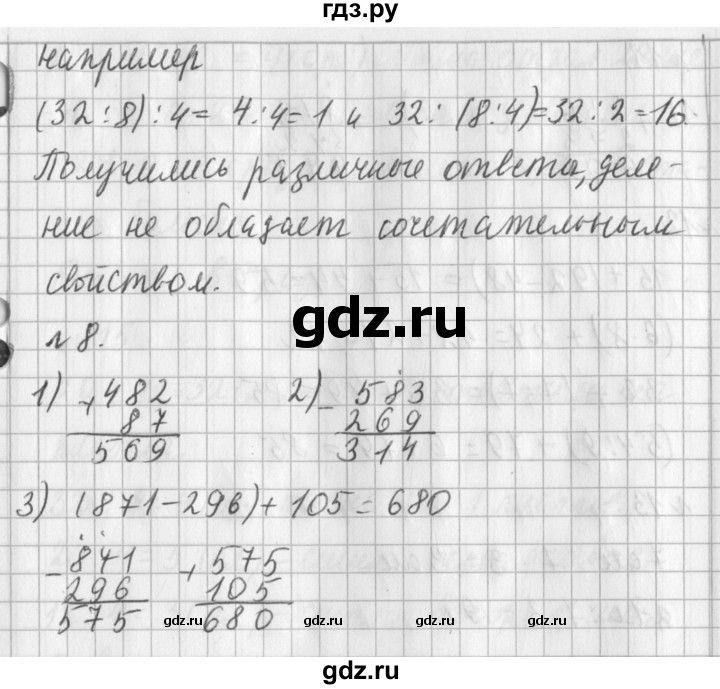 гдз.ру
например
(32:8):4= 4:4=1 и 32:(8:4)=32:2=16.
Получились различные ответы, деле-
ние не обладает сочетательным
свойством.
gdz.ru
№ 8.
1) +482
87
569
2) -583
269
314
3) (871-296)+105=680
-871
296
575
+575
105
680
gdz.ru gdz.ru gdz.ru gdz.ru gdz.ru
gdz.ru